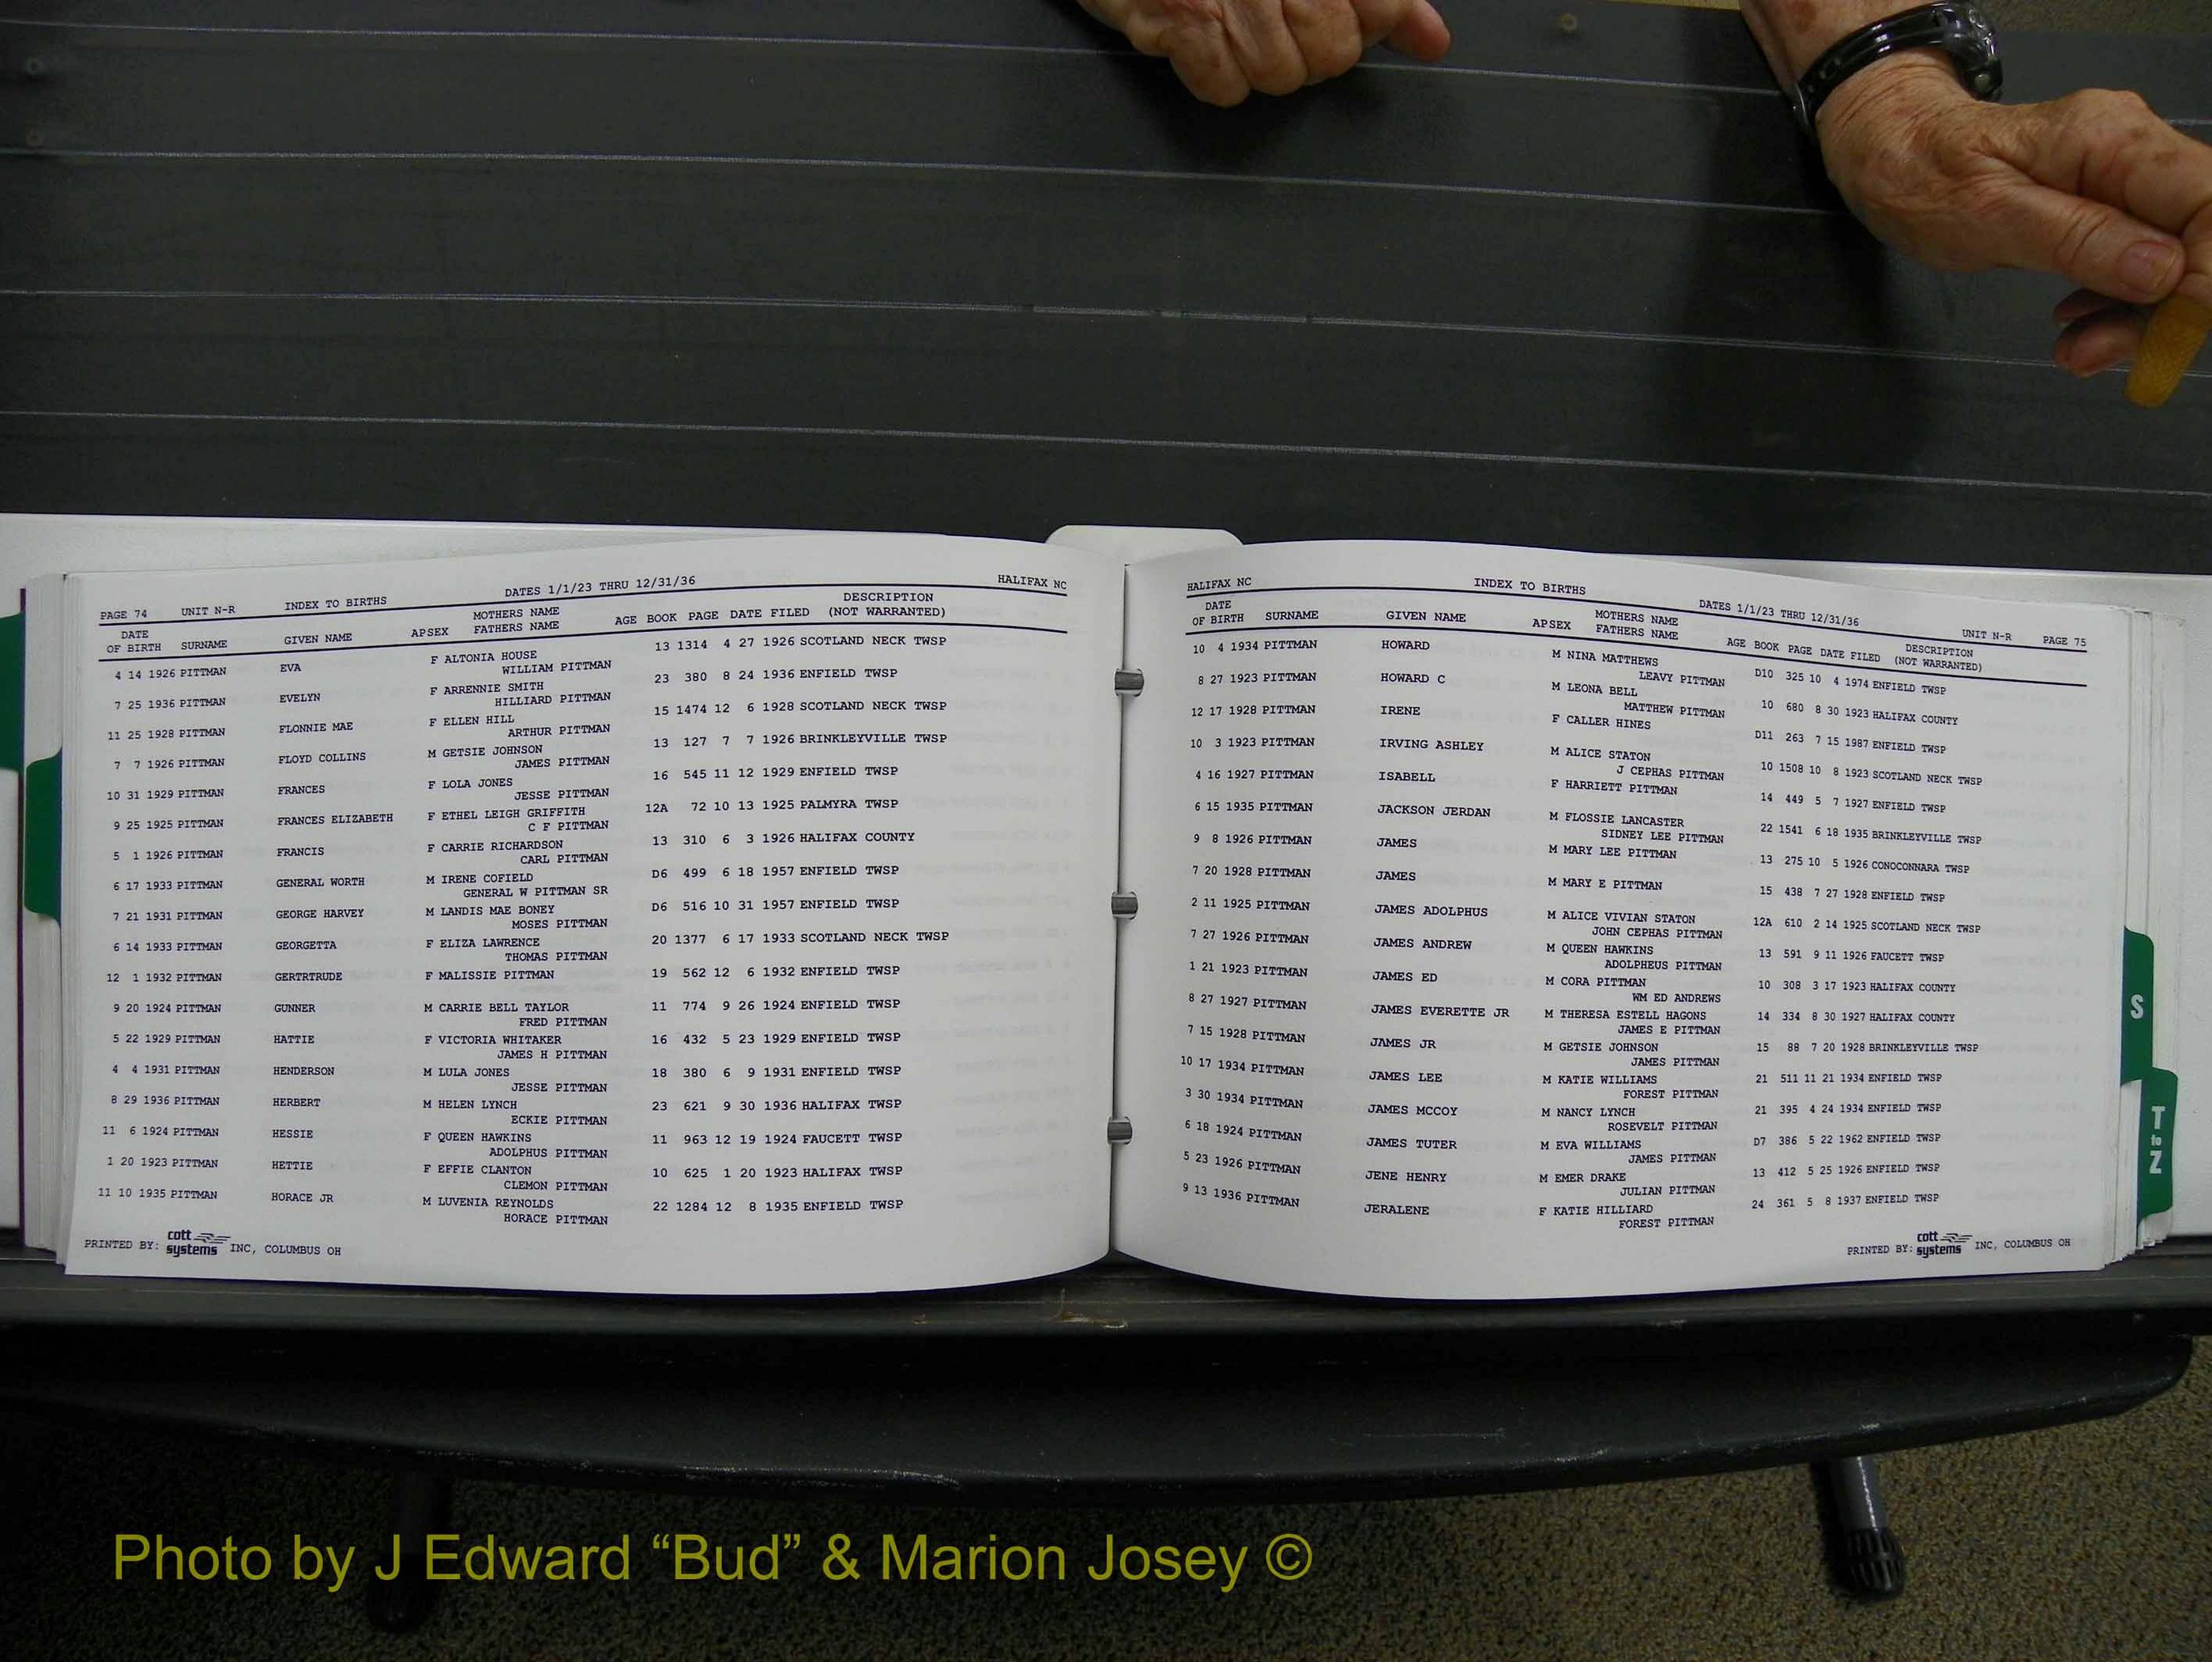 PAGE 74 UNIT N-R INDEX TO BIRTHS DATES 1/1/23 THRU 12/31/36 HALIFAX NC
DATE OF BIRTH SURNAME GIVEN NAME APSEX MOTHERS NAME FATHERS NAME AGE BOOK PAGE DATE FILED DESCRIPTION (NOT WARRANTED)
4 14 1926 PITTMAN EVA F ALTONIA HOUSE 13 1314 4 27 1926 SCOTLAND NECK TWSP
WILLIAM PITTMAN
7 25 1936 PITTMAN EVELYN F ARRENNIE SMITH 23 380 8 24 1936 ENFIELD TWSP
HILLIARD PITTMAN
11 25 1928 PITTMAN FLONNIE MAE F ELLEN HILL 15 1474 12 6 1928 SCOTLAND NECK TWSP
ARTHUR PITTMAN
7 7 1926 PITTMAN FLOYD COLLINS M GETSIE JOHNSON 13 127 7 7 1926 BRINKLEYVILLE TWSP
JAMES PITTMAN
10 31 1929 PITTMAN FRANCES F LOLA JONES 16 545 11 12 1929 ENFIELD TWSP
JESSE PITTMAN
9 25 1925 PITTMAN FRANCES ELIZABETH F ETHEL LEIGH GRIFFITH 12A 72 10 13 1925 PALMYRA TWSP
C F PITTMAN
5 1 1926 PITTMAN FRANCIS F CARRIE RICHARDSON 13 310 6 3 1926 HALIFAX COUNTY
CARL PITTMAN
6 17 1933 PITTMAN GENERAL WORTH M IRENE COFIELD D6 499 6 18 1957 ENFIELD TWSP
GENERAL W PITTMAN SR
7 21 1931 PITTMAN GEORGE HARVEY M LANDIS MAE BONEY D6 516 10 31 1957 ENFIELD TWSP
MOSES PITTMAN
6 14 1933 PITTMAN GEORGETTA F ELIZA LAWRENCE 20 1377 6 17 1933 SCOTLAND NECK TWSP
THOMAS PITTMAN
12 1 1932 PITTMAN GERTRTRUDE F MALISSIE PITTMAN 19 562 12 6 1932 ENFIELD TWSP
9 20 1924 PITTMAN GUNNER M CARRIE BELL TAYLOR 11 774 9 26 1924 ENFIELD TWSP
FRED PITTMAN
5 22 1929 PITTMAN HATTIE F VICTORIA WHITAKER 16 432 5 23 1929 ENFIELD TWSP
JAMES H PITTMAN
4 4 1931 PITTMAN HENDERSON M LULA JONES 18 380 6 9 1931 ENFIELD TWSP
JESSE PITTMAN
8 29 1936 PITTMAN HERBERT M HELEN LYNCH 23 621 9 30 1936 HALIFAX TWSP
ECKIE PITTMAN
11 6 1924 PITTMAN HESSIE F QUEEN HAWKINS 11 963 12 19 1924 FAUCETT TWSP
ADOLPHUS PITTMAN
1 20 1923 PITTMAN HETTIE F EFFIE CLANTON 10 625 1 20 1923 HALIFAX TWSP
CLEMON PITTMAN
11 10 1935 PITTMAN HORACE JR M LUVENIA REYNOLDS 22 1284 12 8 1935 ENFIELD TWSP
HORACE PITTMAN
PRINTED BY: cott systems INC, COLUMBUS OH
HALIFAX NC INDEX TO BIRTHS DATES 1/1/23 THRU 12/31/36 UNIT N-R PAGE 75
DATE OF BIRTH SURNAME GIVEN NAME APSEX MOTHERS NAME FATHERS NAME AGE BOOK PAGE DATE FILED DESCRIPTION (NOT WARRANTED)
10 4 1934 PITTMAN HOWARD M NINA MATTHEWS D10 325 10 4 1974 ENFIELD TWSP
LEAVY PITTMAN
8 27 1923 PITTMAN HOWARD C M LEONA BELL 10 680 8 30 1923 HALIFAX COUNTY
MATTHEW PITTMAN
12 17 1928 PITTMAN IRENE F CALLER HINES D11 263 7 15 1987 ENFIELD TWSP
10 3 1923 PITTMAN IRVING ASHLEY M ALICE STATON 10 1508 10 8 1923 SCOTLAND NECK TWSP
J CEPHAS PITTMAN
4 16 1927 PITTMAN ISABELL F HARRIETT PITTMAN 14 449 5 7 1927 ENFIELD TWSP
6 15 1935 PITTMAN JACKSON JERDAN M FLOSSIE LANCASTER 22 1541 6 18 1935 BRINKLEYVILLE TWSP
SIDNEY LEE PITTMAN
9 8 1926 PITTMAN JAMES M MARY LEE PITTMAN 13 275 10 5 1926 CONOCONNARA TWSP
7 20 1928 PITTMAN JAMES M MARY E PITTMAN 15 438 7 27 1928 ENFIELD TWSP
2 11 1925 PITTMAN JAMES ADOLPHUS M ALICE VIVIAN STATON 12A 610 2 14 1925 SCOTLAND NECK TWSP
JOHN CEPHAS PITTMAN
7 27 1926 PITTMAN JAMES ANDREW M QUEEN HAWKINS 13 591 9 11 1926 FAUCETT TWSP
ADOLPHEUS PITTMAN
1 21 1923 PITTMAN JAMES ED M CORA PITTMAN 10 308 3 17 1923 HALIFAX COUNTY
WM ED ANDREWS
8 27 1927 PITTMAN JAMES EVERETTE JR M THERESA ESTELL HAGONS 14 334 8 30 1927 HALIFAX COUNTY
JAMES E PITTMAN
7 15 1928 PITTMAN JAMES JR M GETSIE JOHNSON 15 88 7 20 1928 BRINKLEYVILLE TWSP
JAMES PITTMAN
10 17 1934 PITTMAN JAMES LEE M KATIE WILLIAMS 21 511 11 21 1934 ENFIELD TWSP
FOREST PITTMAN
3 30 1934 PITTMAN JAMES MCCOY M NANCY LYNCH 21 395 4 24 1934 ENFIELD TWSP
ROSEVELT PITTMAN
6 18 1924 PITTMAN JAMES TUTER M EVA WILLIAMS D7 386 5 22 1962 ENFIELD TWSP
JAMES PITTMAN
5 23 1926 PITTMAN JENE HENRY M EMER DRAKE 13 412 5 25 1926 ENFIELD TWSP
JULIAN PITTMAN
9 13 1936 PITTMAN JERALENE F KATIE HILLIARD 24 361 5 8 1937 ENFIELD TWSP
FOREST PITTMAN
PRINTED BY: cott systems INC, COLUMBUS OH
S
T to Z
Photo by J Edward “Bud” & Marion Josey ©